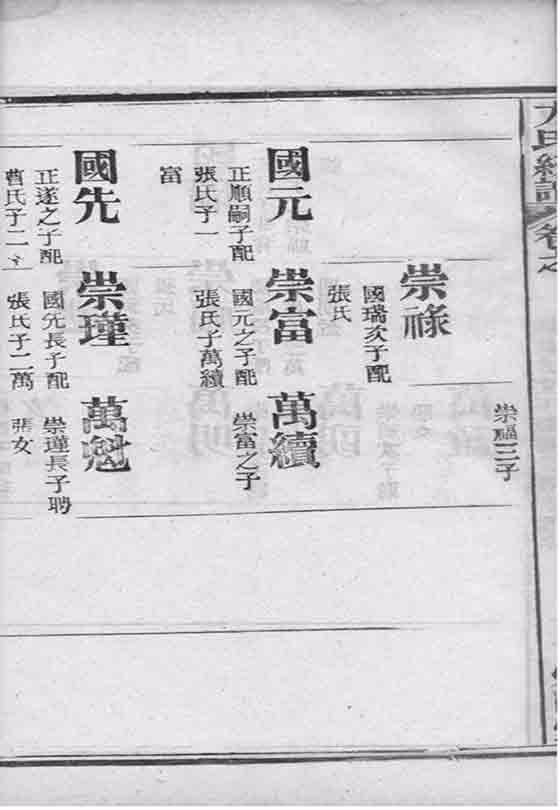 崇福三子
崇祿
國瑞次子配
張氏
國元
正順嗣子配
張氏子一
富
崇富
國元之子配
張氏子萬續
萬續
崇富之子
國先
正遂之子配
曹氏子二
崇瑾
國先長子配
張氏子二萬
萬魁
崇瑾長子聘
張女